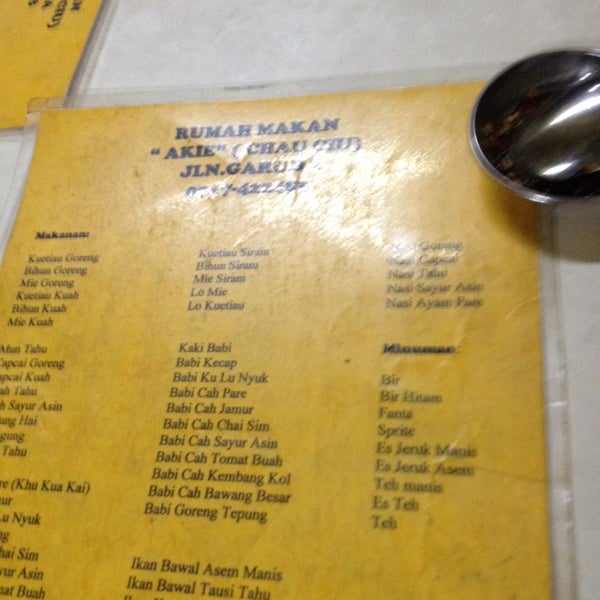 RUMAH MAKAN
"AKIE" (CHAU CHU)
Makanan:
Kuetiau Goreng
Bihun Goreng
Mie Goreng
Kuetiau Kuah
Bihun Kuah
Mie Kuah
Kuetiau Siram
Bihun Siram
Mie Siram
Lo Mie
Lo Kuetiau
Nasi Goreng
Nasi Capcai
Nasi Tahu
Nasi Sayur Asin
Nasi Ayam Pare
Mun Tahu
Capcai Goreng
Capcai Kuah
Tahu
Sayur Asin
Hai
Tahu
Kaki Babi
Babi Kecap
Babi Ku Lu Nyuk
Babi Cah Pare
Babi Cah Jamur
Babi Cah Chai Sim
Babi Cah Sayur Asin
Babi Cah Tomat Buah
Babi Cah Kembang Kol
Babi Cah Bawang Besar
Babi Goreng Tepung
Minuman:
Bir
Bir Hitam
Fanta
Sprite
Es Jeruk Manis
Es Jeruk Asem
Teh manis
Es Teh
Teh
(Khu Kua Kai)
Lu Nyuk
Sim
Asin
Buah
Ikan Bawal Asem Manis
Ikan Bawal Tausi Tahu